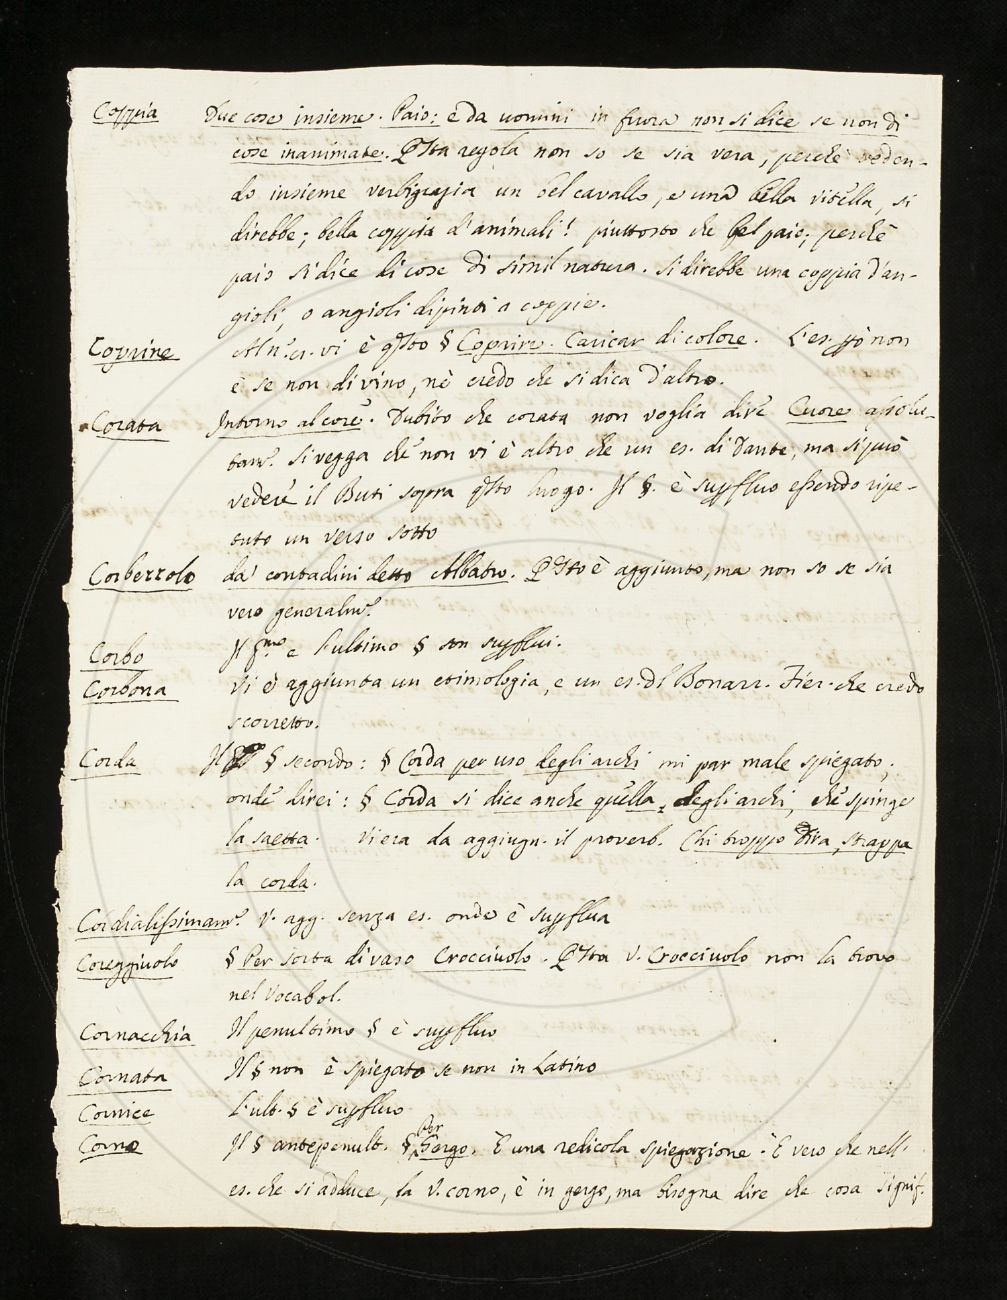 Coppia Due cose insieme. Paio: e da uomini in fuora non si dice se non di
cose inanimate. Qsta regola non so se sia vera, perchè veden-
do insieme verbigrazia un bel cavallo, e una bella vitella, si
direbbe; bella coppia d'animali! piuttosto che bel paio; perchè
paio si dice di cose di simil natura. Si direbbe una coppia d'an-
gioli, o angioli dipinti a coppie.
Coprire vi è qsto § Coprire. Caricar di colore. L'es. però non
è se non di vino, nè credo che si dica d'altro.
Corata Intorno al core. Dubito che corata non voglia dire Cuore assolu-
tamte. Si vegga che non vi è altro che un es. di Dante, ma si può
vedere il Buti sopra qsto luogo. Il §. è supfluo essendo ripe-
tuto un verso sotto
Corbezzolo da' contadini detto Albatro. Qsto è aggiunto, ma non so se sia
vero generalmte.
Corbo Il e l'ultimo § son supflui.
Corbona Vi è aggiunta un etimologia, e un es. dl Bonarr. Fier. che credo
scorretto.
Corda Il § secondo: § Corda per uso degli archi mi par male spiegato,
onde direi: § Corda si dice anche quella degli archi, che spinge
la saetta. Vi era da aggiugn. il proverb. Chi troppo tira, strappa
la corda.
Cordialissimamte. V. agg. senza es. onde è supflua
Coreggiuolo § Per sorta di vaso Crocciuolo. Qsta V. Crocciuolo non la trovo
nel Vocabol.
Cornacchia Il penultimo § è supfluo
Cornata Il § non è spiegato se non in Latino
Cornice L'ult. § è supfluo
Corno Il § antepenult. § Per Gergo. È una redicola spiegazione. È vero che nell'
es. che si adduce, la V. corno, è in gergo, ma bisogna dire che cosa signif.